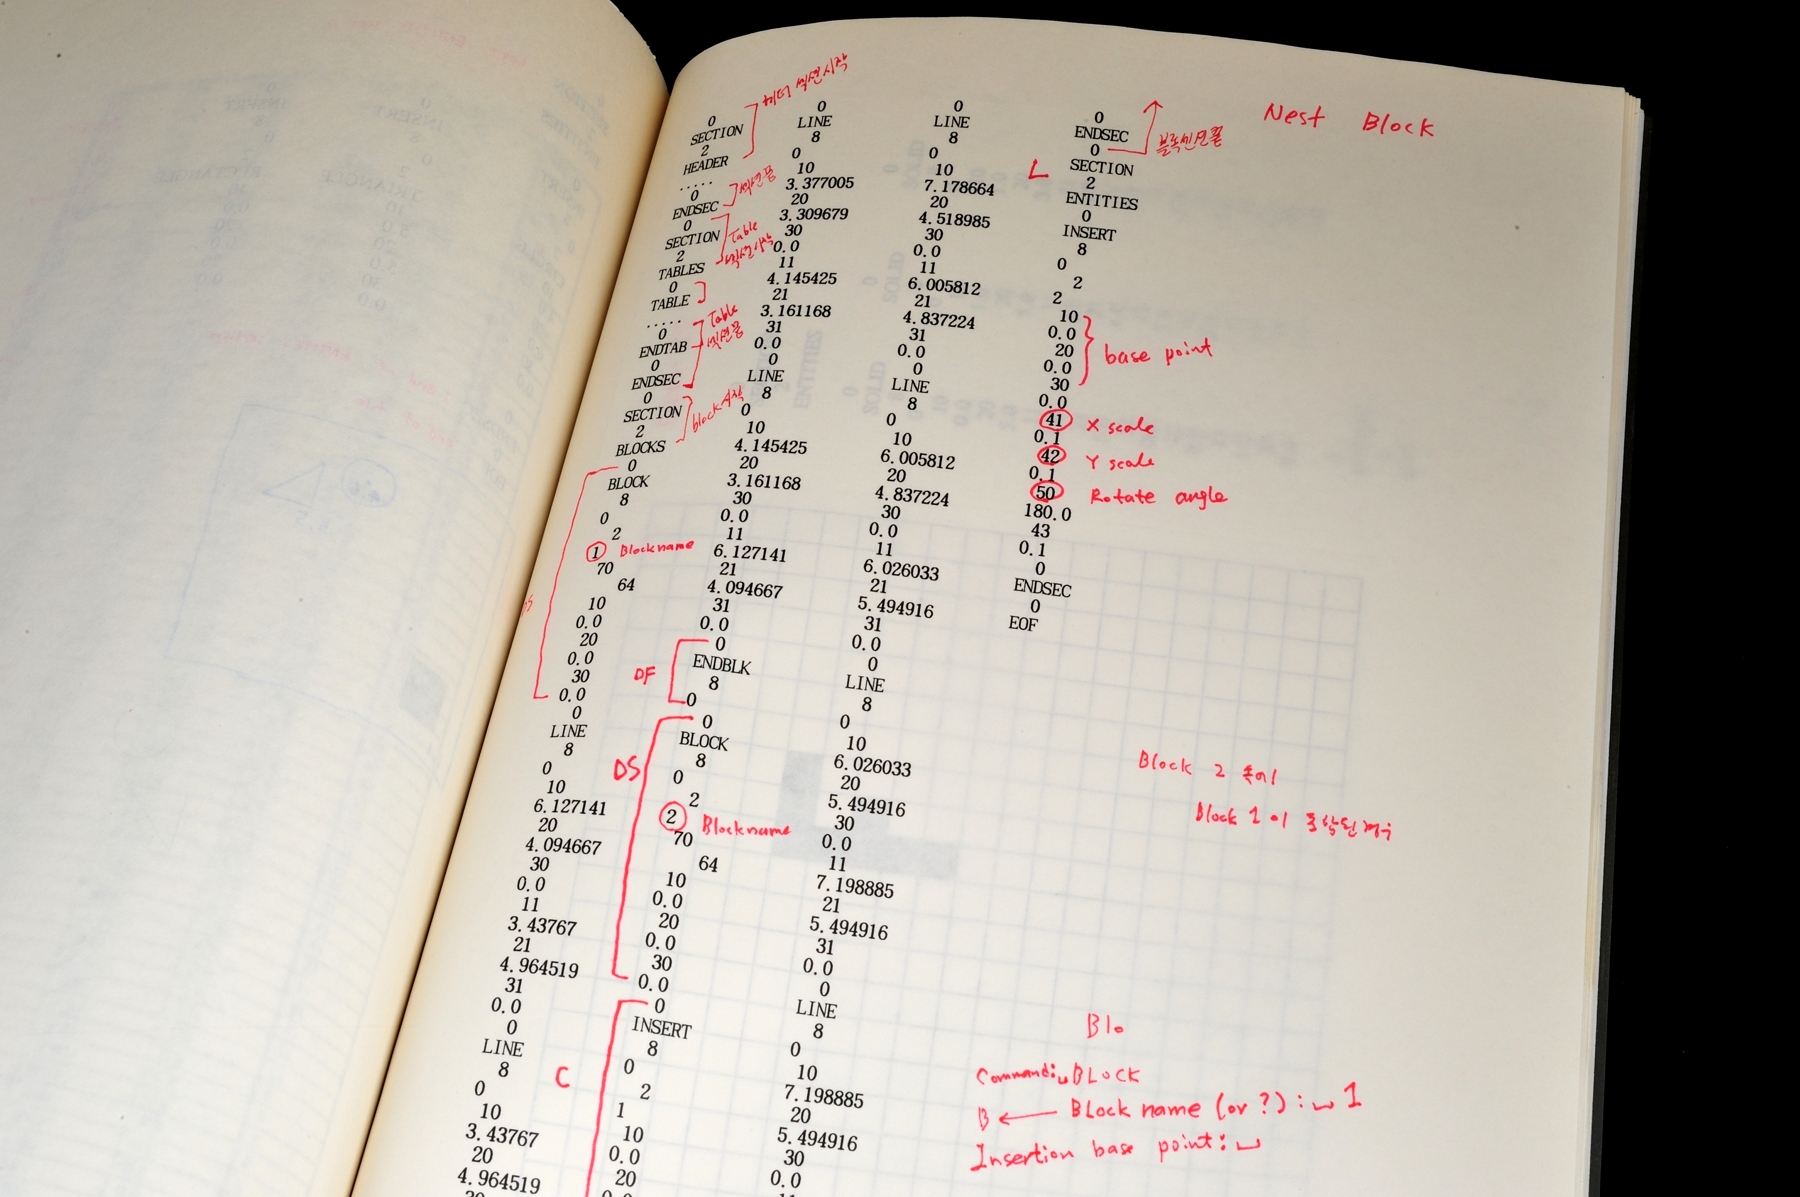 Nest Block
헤더 섹션시작
0
SECTION
2
HEADER
.....
0
ENDSEC
섹션끝
0
SECTION
2
TABLES
Table
섹션시작
0
TABLE
.....
0
ENDTAB
0
ENDSEC
Table
섹션끝
0
SECTION
2
BLOCKS
block시작
0
BLOCK
8
0
2
1 Blockname
70
64
10
0.0
20
0.0
30
0.0
0
LINE
8
0
10
6.127141
20
4.094667
30
0.0
11
3.43767
21
4.964519
31
0.0
0
LINE
8
0
10
3.43767
20
4.964519
0
LINE
8
0
10
3.377005
20
3.309679
30
0.0
11
4.145425
21
3.161168
31
0.0
0
LINE
8
0
10
4.145425
20
3.161168
30
0.0
11
6.127141
21
4.094667
31
0.0
DF
0
ENDBLK
8
0
DS
0
BLOCK
8
0
2
2 Blockname
70
64
10
0.0
20
0.0
30
0.0
C
0
INSERT
8
0
2
1
10
0.0
20
0
LINE
8
0
10
7.178664
20
4.518985
30
0.0
11
6.005812
21
4.837224
31
0.0
0
LINE
8
0
10
6.005812
20
4.837224
30
0.0
11
6.026033
21
5.494916
31
0.0
0
LINE
8
0
10
6.026033
20
5.494916
30
0.0
11
7.198885
21
5.494916
31
0.0
0
LINE
8
0
10
7.198885
20
5.494916
30
0.0
0
ENDSEC
블록섹션끝
L
0
SECTION
2
ENTITIES
0
INSERT
8
0
2
2
10
0.0
20
0.0
30
0.0
base point
41 X scale
0.1
42 Y scale
0.1
50 Rotate angle
180.0
43
0.1
0
ENDSEC
0
EOF
Block 2 속에
Block 1이 포함된경우
Blo
Command:␣BLOCK
B ← Block name (or ?):␣1
Insertion base point:␣